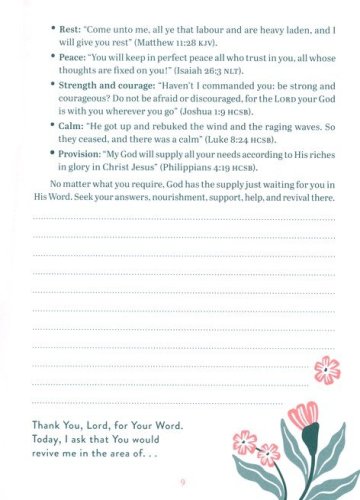 • Rest: “Come unto me, all ye that labour and are heavy laden, and I
will give you rest” (Matthew 11:28 KJV).
• Peace: “You will keep in perfect peace all who trust in you, all whose
thoughts are fixed on you!” (Isaiah 26:3 NLT).
• Strength and courage: “Haven’t I commanded you: be strong and
courageous? Do not be afraid or discouraged, for the LORD your God
is with you wherever you go” (Joshua 1:9 HCSB).
• Calm: “He got up and rebuked the wind and the raging waves. So
they ceased, and there was a calm” (Luke 8:24 HCSB).
• Provision: “My God will supply all your needs according to His riches
in glory in Christ Jesus” (Philippians 4:19 HCSB).
No matter what you require, God has the supply just waiting for you in
His Word. Seek your answers, nourishment, support, help, and revival there.
Thank You, Lord, for Your Word.
Today, I ask that You would
revive me in the area of. . .
9